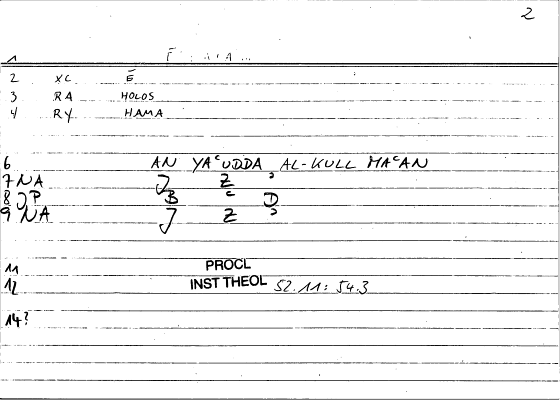 2
1
2 XC Ē
3 RA HOLOS
4 RY HAMA
6 AN YAʿUDDA AL-KULL MAʿAN
7 NA J Z ʾ
8 JP B ʿ D
9 NA J Z ʾ
11 PROCL
12 INST THEOL 52.11: 54.3
14?